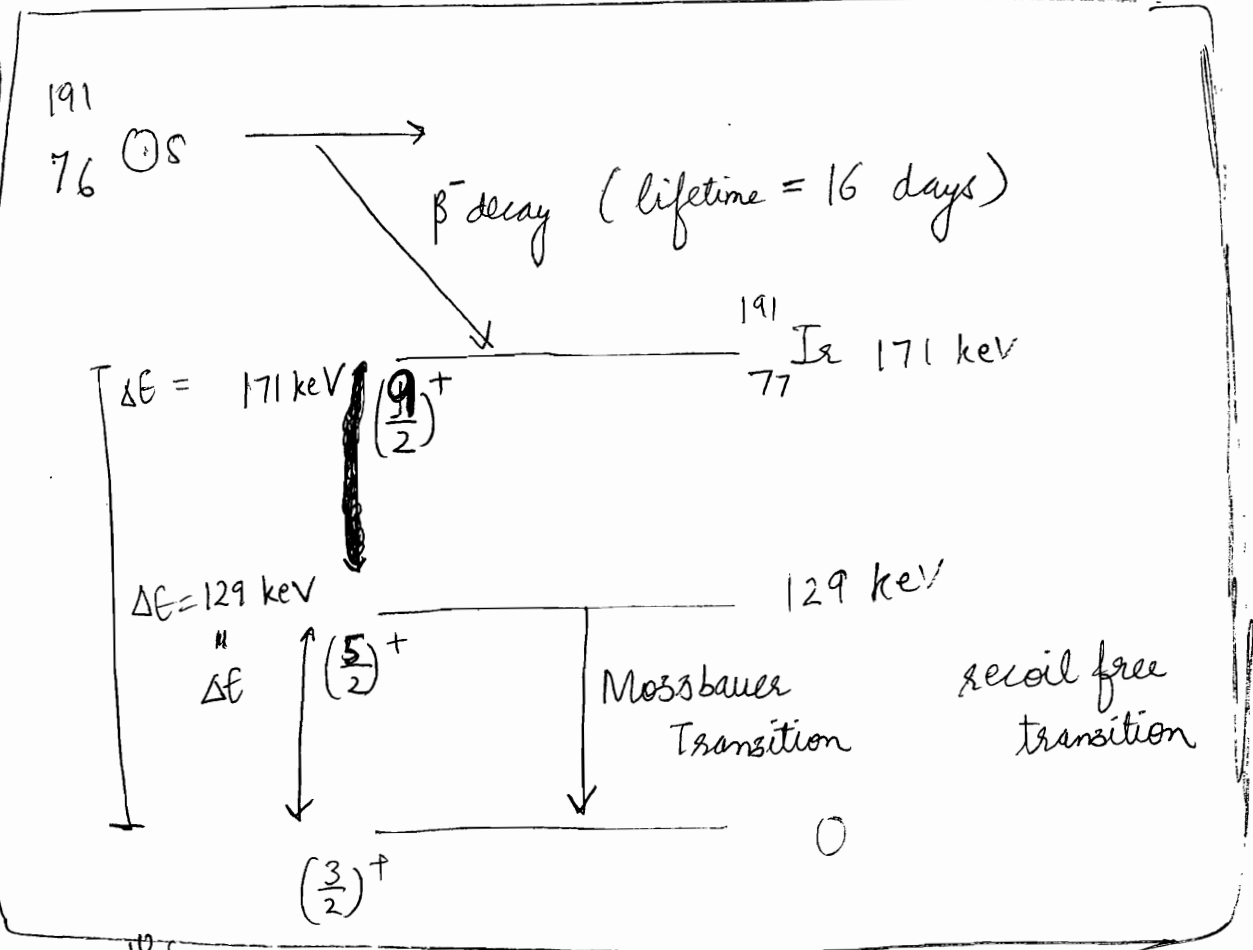 191
76 Os
β⁻ decay (lifetime = 16 days)
191
77 Ir 171 keV
ΔE = 171 keV (9/2)+
ΔE = 129 keV
129 keV
"
ΔE
(5/2)+
Mossbauer
Transition
recoil free
transition
0
(3/2)+